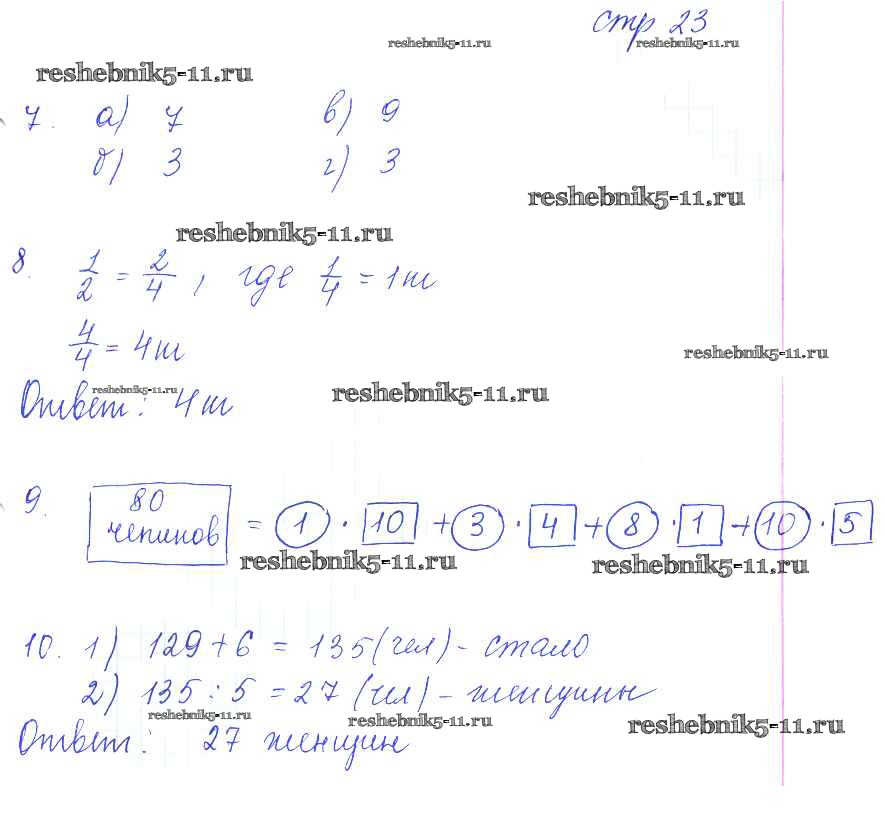 стр 23
reshebnik5-11.ru reshebnik5-11.ru
reshebnik5-11.ru
7. а) 7 в) 9
б) 3 г) 3
reshebnik5-11.ru
reshebnik5-11.ru
8. 1/2 = 2/4, где 1/4 = 1ш
4/4 = 4ш
reshebnik5-11.ru
reshebnik5-11.ru
reshebnik5-11.ru
Ответ: 4ш
9. 80 чепинов = 1 · 10 + 3 · 4 + 8 · 1 + 10 · 5
reshebnik5-11.ru reshebnik5-11.ru
10. 1) 129 + 6 = 135 (чел) - стало
2) 135 : 5 = 27 (чел) - женщины
reshebnik5-11.ru reshebnik5-11.ru reshebnik5-11.ru
Ответ: 27 женщин